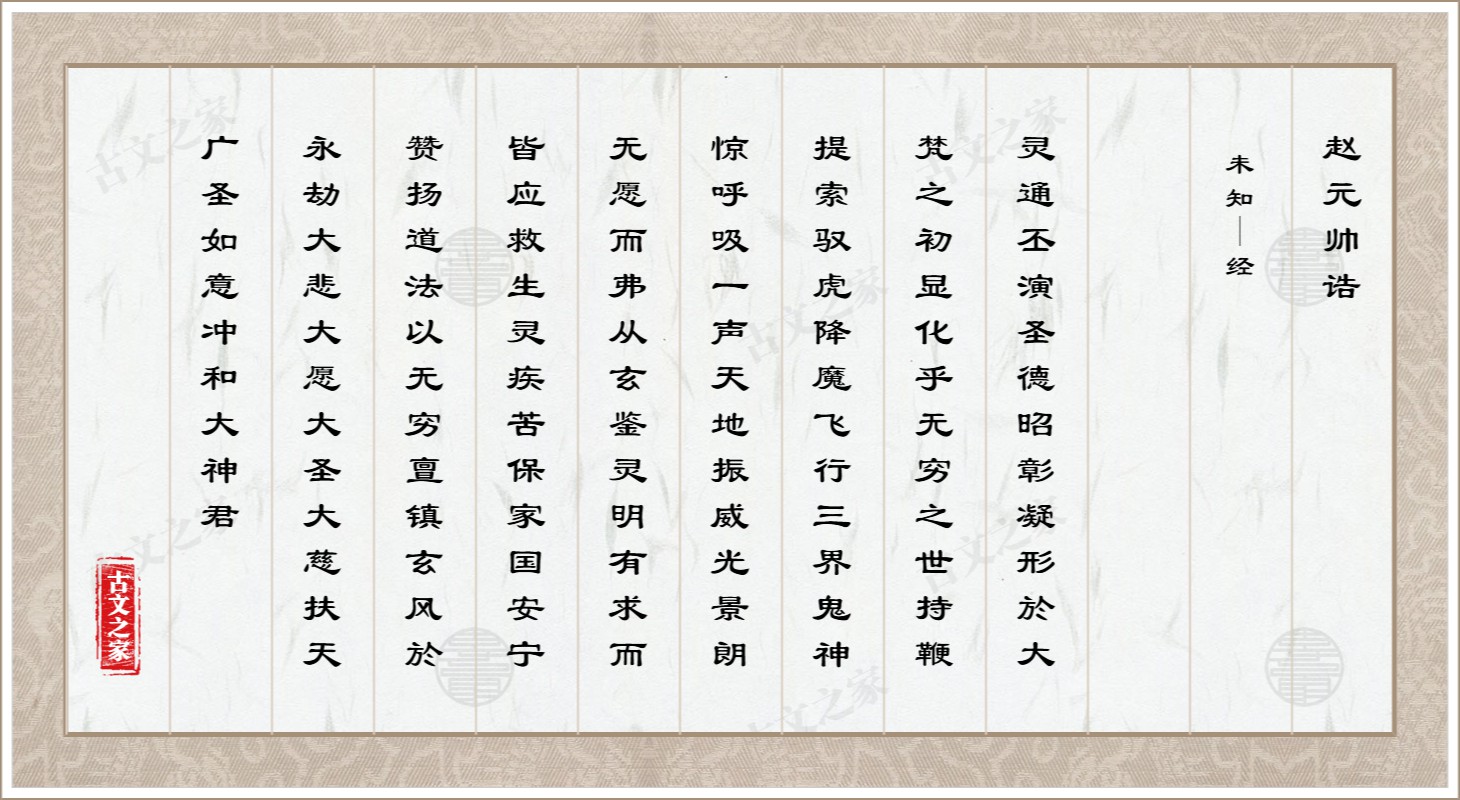 赵元帅诰
未知｜经
灵通丕演圣德昭彰凝形於大
梵之初显化乎无穷之世持鞭
提索驭虎降魔飞行三界鬼神
惊呼吸一声天地振威光景朗
无愿而弗从玄鉴灵明有求而
皆应救生灵疾苦保家国安宁
赞扬道法以无穷亶镇玄风於
永劫大悲大愿大圣大慈扶天
广圣如意冲和大神君
古文之家